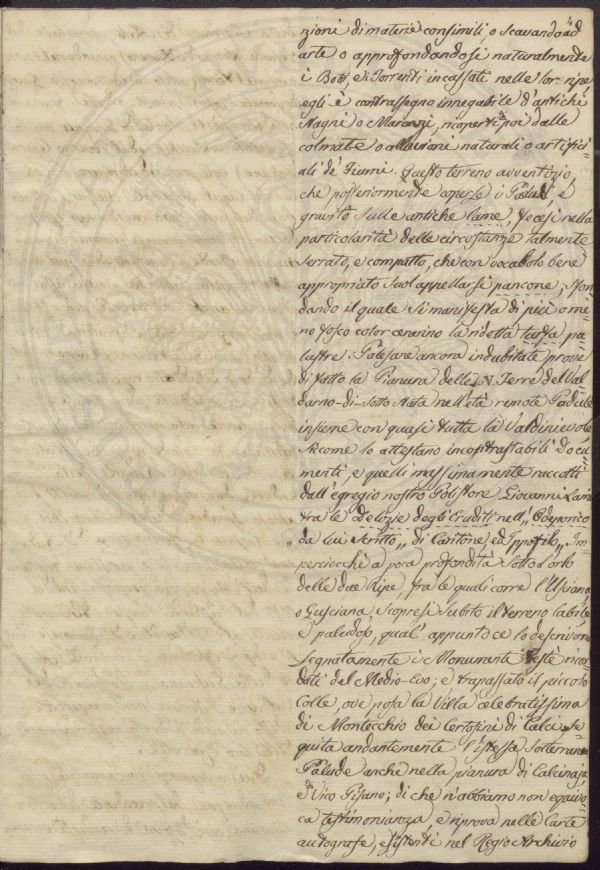 4
zioni di materie consimili, o scavando ad
arte o approfondandosi naturalmente
i Botri, e i Torrenti incassati nelle lor ripe,
egli è contrassegno innegabile d'antichi
Stagni o Marazzi, ricoperti poi dalle
colmate o alluvioni naturali o artifici-
ali de' Fiumi. Questo terreno avventizio,
che posteriormente coperse i Paduli, e
gravitò sulle antiche lame, fecesi nella
particolarità delle circostanze talmente
serrato, e compatto, che con vocabolo bene
appropriato suol appellarsi pancone, sfon-
dando il quale si manifesta di più o me-
no fosco color cenerino la ridetta turfa pa-
lustre. Palesane ancora indubitate prove
di fatto la Pianura delle Terre del Val-
darno-di-Sotto stata nell'età remote Padule
insieme con quasi tutta la Valdinievole
siccome lo attestano incontrastabili Docu-
menti, e quelli massimamente raccolti
dall'egregio nostro Polistore Giovanni Lami
tra le Delizie degli Eruditi nell',, Odeporico
da lui scritto ,, di Caritone ed Ippofilo ,, Im-
perciocchè a poca profondità sotto l'orlo
delle due Ripe, fra le quali corre l'Usciana
o Gusciana, scopresi subito il terreno labile
e paludoso, qual' appunto ce lo descrivono
segnatamente i Monumenti testè ricor-
dati del Medio-Evo; e trapassato il piccolo
Colle, ove posa la Villa celebratissima
di Montecchio dei Certosini di Calci, se-
guita andantemente l'istessa sotterranea
Palude anche nella pianura di Calcinaja
e Vico Pisano; di che n'abbiamo non equivo-
ca testimonianza, e riprova nelle Carte
autografe, esistenti nel Regio Archivio